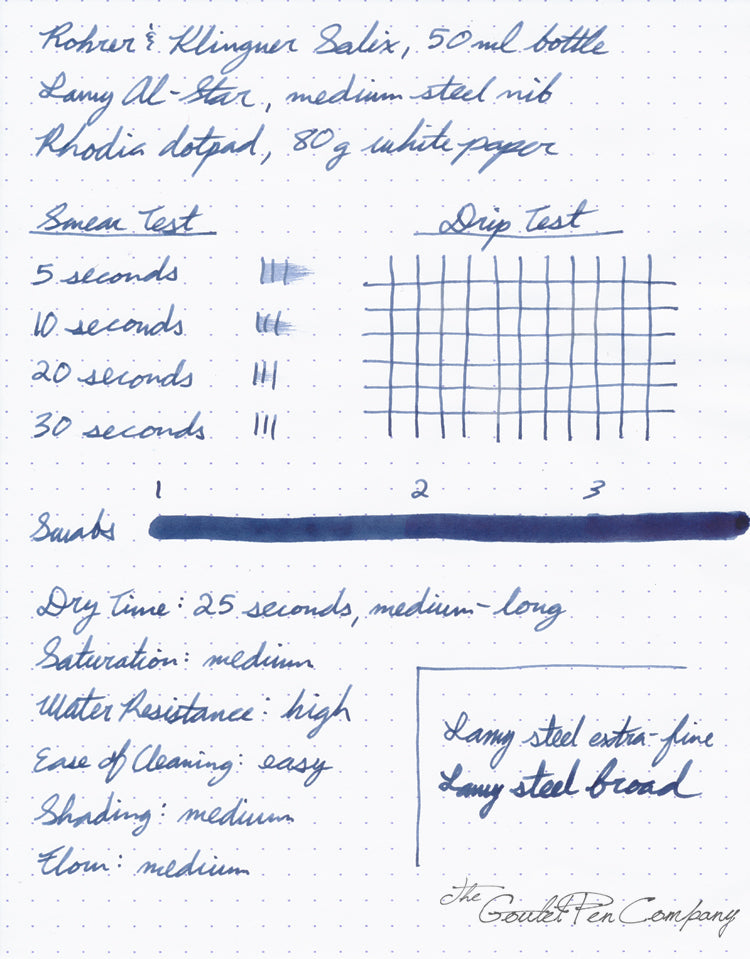 Rohrer & Klingner Salix, 50ml bottle
Lamy Al-Star, medium steel nib
Rhodia dotpad, 80g white paper
Smear Test
5 seconds
10 seconds
20 seconds
30 seconds
Drip Test
1 2 3
Swabs
Dry Time: 25 seconds, medium-long
Saturation: medium
Water Resistance: high
Ease of Cleaning: easy
Shading: medium
Flow: medium
Lamy steel extra-fine
Lamy steel broad
The Goulet Pen Company